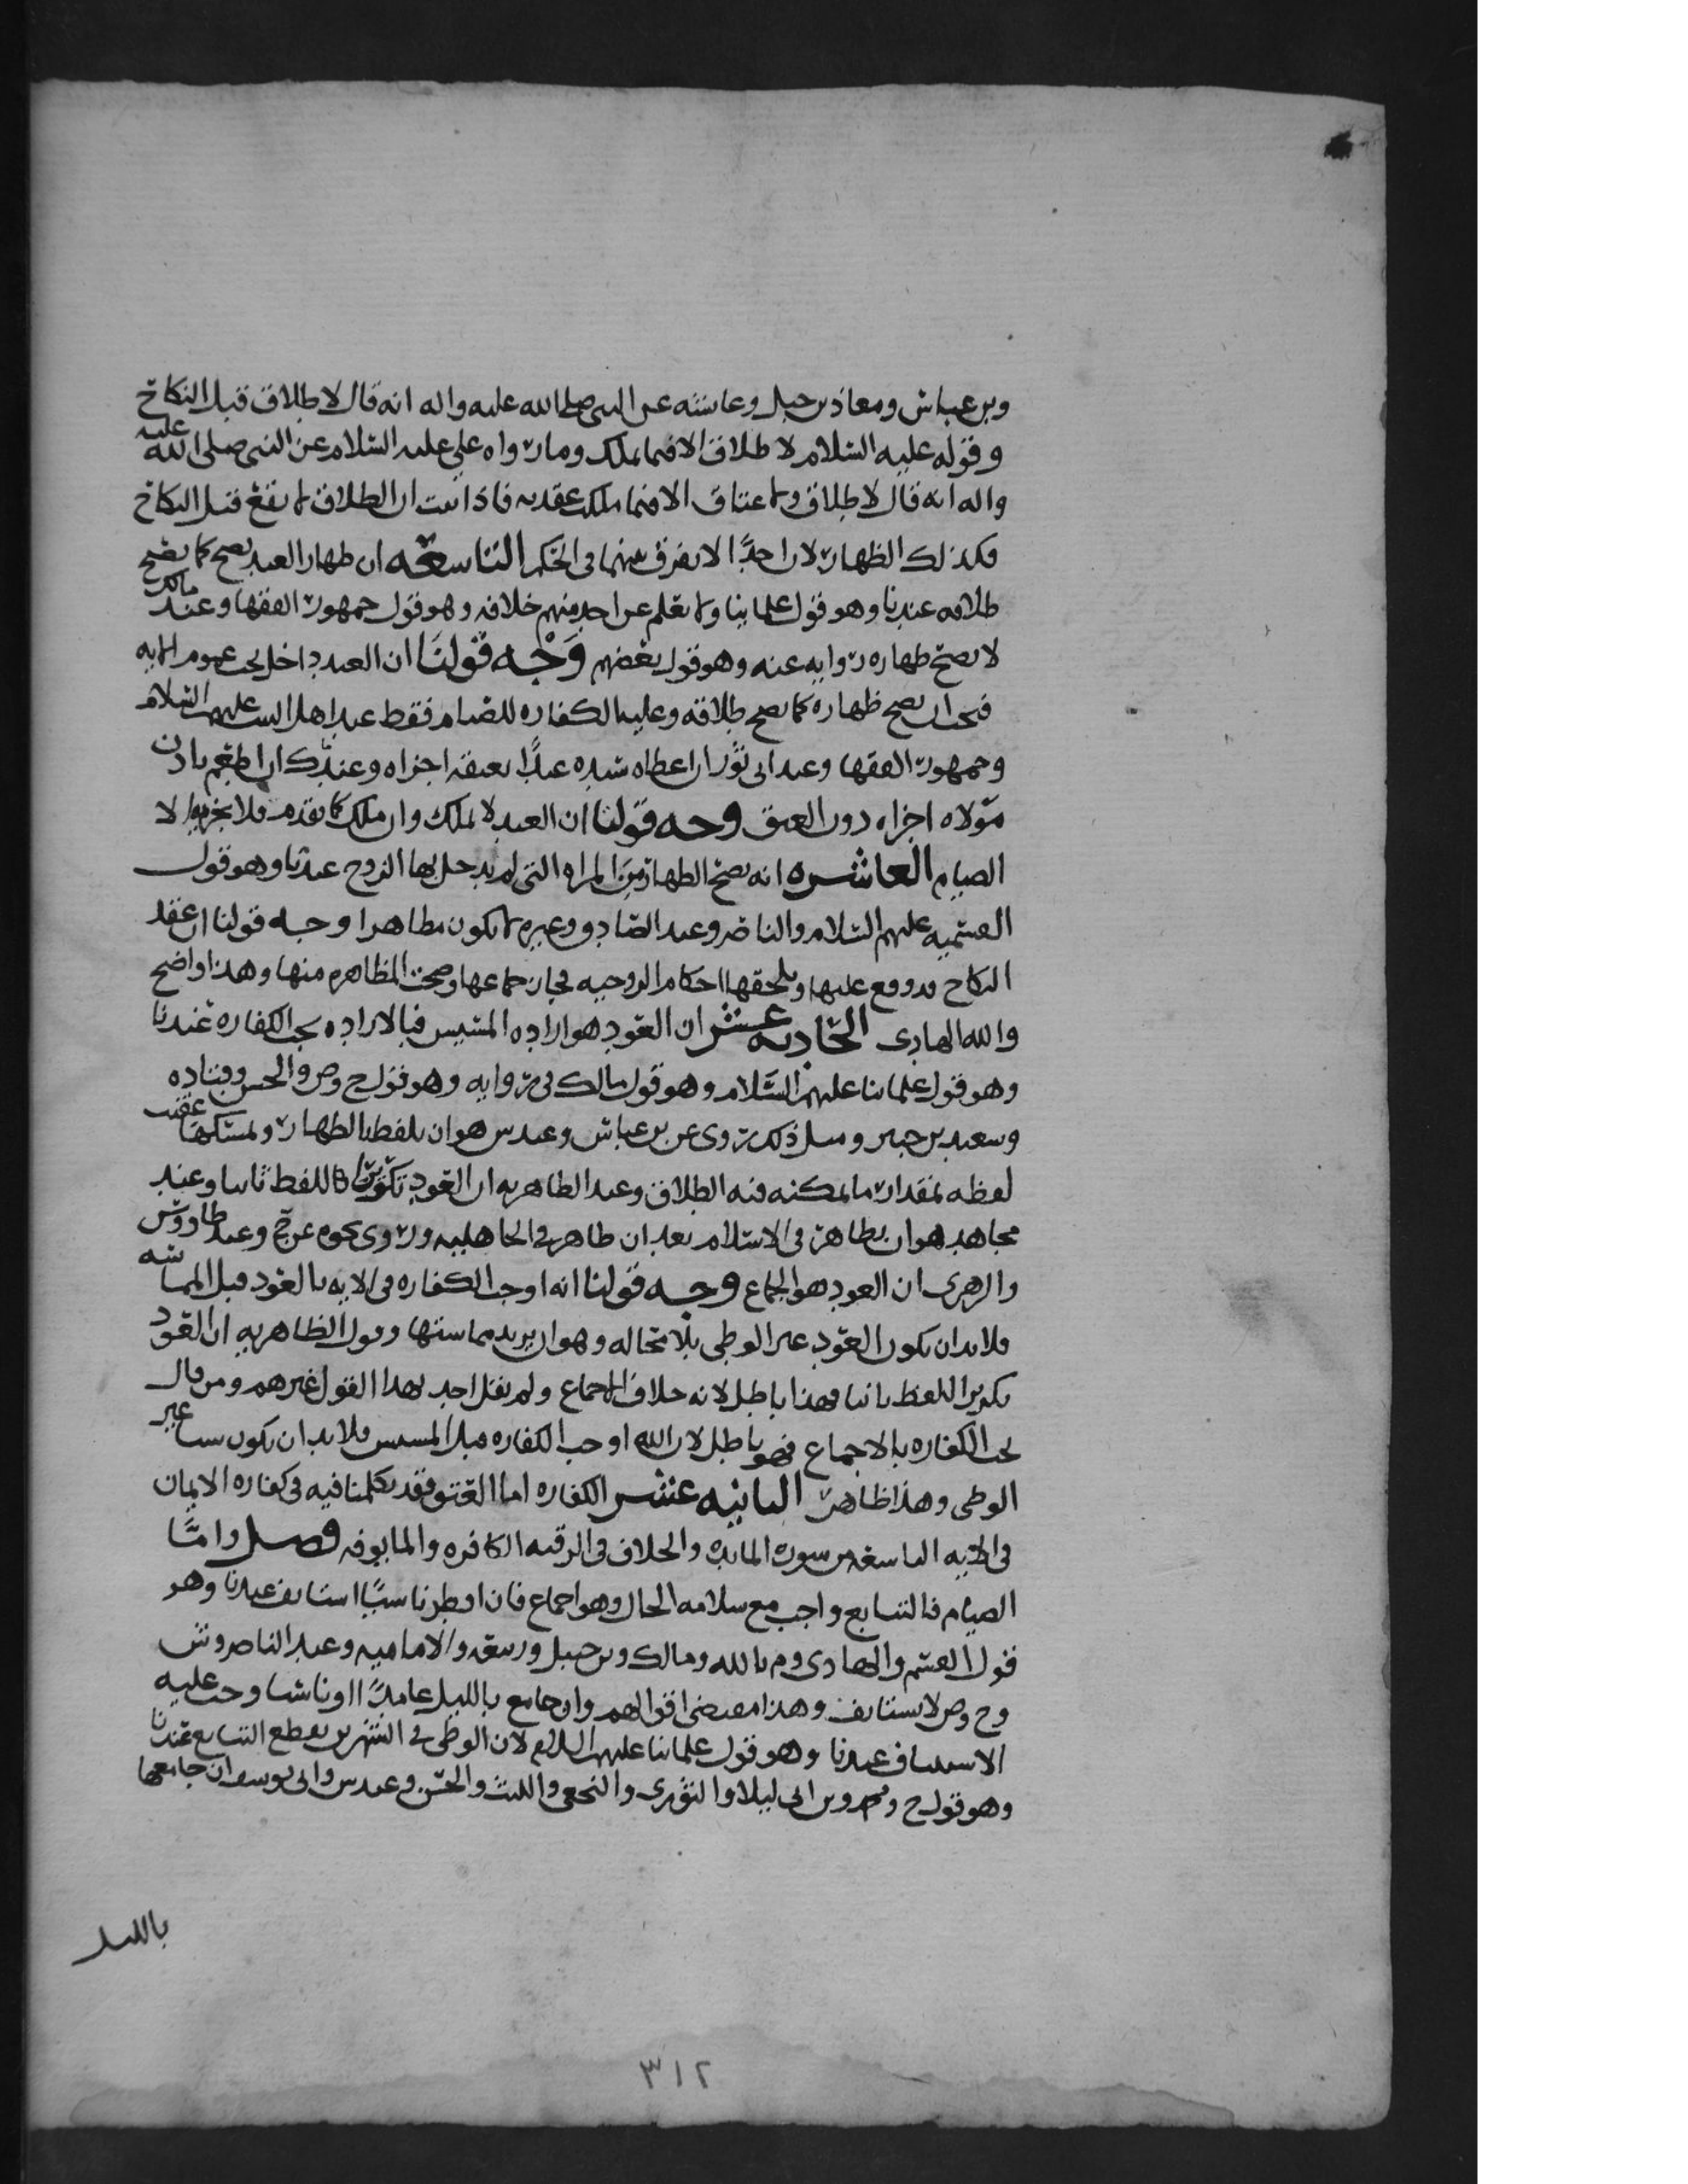 وبن عباس ومعاذ بن جبل وعائشه عن النبي صلى الله عليه واله انه قال لا طلاق قبل النكاح
وقوله عليه السلام لا طلاق الا فيما يملك وما رواه علي عليه السلام عن النبي صلى الله عليه
واله انه قال لا طلاق ولا عتاق الا فيما ملكت عقدته فاذا ثبت ان الطلاق لا يقع قبل النكاح
فكذلك الظهار لان احدًا لا يفرق بينهما في الحكم التاسعه ان ظهار العبد يصح كما يصح
طلاقه عندنا وهو قول علمائنا ولا نعلم عن احد منهم خلافه وهو قول جمهور الفقها وعند مالك
لا يصح ظهاره روايه عنه وهو قول بعضهم وجه قولنا ان العبد داخل تحت عموم الايه
فيجب ان يصح ظهاره كما يصح طلاقه وعليه الكفاره للصيام فقط عند اهل البيت عليهم السلام
وجمهور الفقها وعند ابي ثور ان اعطاه سيده عبدًا يعتقه اجزاه وعند ك ان اطعم باذن
مولاه اجزاه دون العتق وجه قولنا ان العبد لا يملك وان ملك كما تقدم فلا يجزيه الا
الصيام العاشره انه يصح الظهار من المراه التي لم يدخل بها الزوج عندنا وهو قول
القسميه عليهم السلام والناصر وعند الصادق وغيره لا يكون مظاهرا وجه قولنا ان عقد
النكاح قد وقع عليها ويلحقها احكام الزوجيه فجاز جماعها وصحت المظاهره منها وهذا واضح
والله الهادي الحاديه عشر ان العود هو اراده المسيس فبالاراده تجب الكفاره عندنا
وهو قول علمائنا عليهم السلام وهو قول مالك في روايه وهو قول ح وص والحسن وقتاده
وسعيد بن جبير ومثل ذلك روي عن بن عباس وعند ش هو ان يلفظ بالظهار ويمسكها عقيب
لفظه بمقدار ما يمكنه فيه الطلاق وعند الظاهريه ان العود تكرير اللفظ ثانيا وعند
مجاهد هو ان يظاهر في الاسلام بعد ان ظاهر في الجاهليه وروي نحوه عن ح وعند طاووس
والزهري ان العود هو الجماع وجه قولنا انه اوجب الكفاره في الايه بالعود قبل المماسه
فلا بد ان يكون العود غير الوطي بلا محاله وهو ان يريد مماستها وقول الظاهريه ان العود
تكرير اللفظ ثانيا فهذا باطل لانه خلاف الاجماع ولم يقل احد بهذا القول غيرهم ومن قال
تجب الكفاره بالاجماع فهو باطل لان الله اوجب الكفاره قبل المسيس فلا بد ان يكون شيا غير
الوطي وهذا ظاهر الثانيه عشر الكفاره اما العتق فقد تكلمنا فيه في كفاره الايمان
في الايه التاسعه من سوره المايده والخلاف في الرقبه الكافره والمايوفه فصل واما
الصيام فالتتابع واجب مع سلامه الحال وهو اجماع فان افطر ناسيًا استانف عندنا وهو
قول القسم والهادي وم بالله ومالك وبن حنبل وربيعه والاماميه وعند الناصر وش
وح وص لا يستانف وهذا مقتضى اقوالهم وان جامع بالليل عامدًا او ناسيا وجب عليه
الاستيناف عندنا وهو قول علمائنا عليهم السلام لان الوطي في الشهرين يقطع التتابع عندنا
وهو قول ح ومحمد وبن ابي ليلا والثوري والنخعي والليث والحسن وعند ش وابي يوسف ان جامعها
بالليل
٣١٢